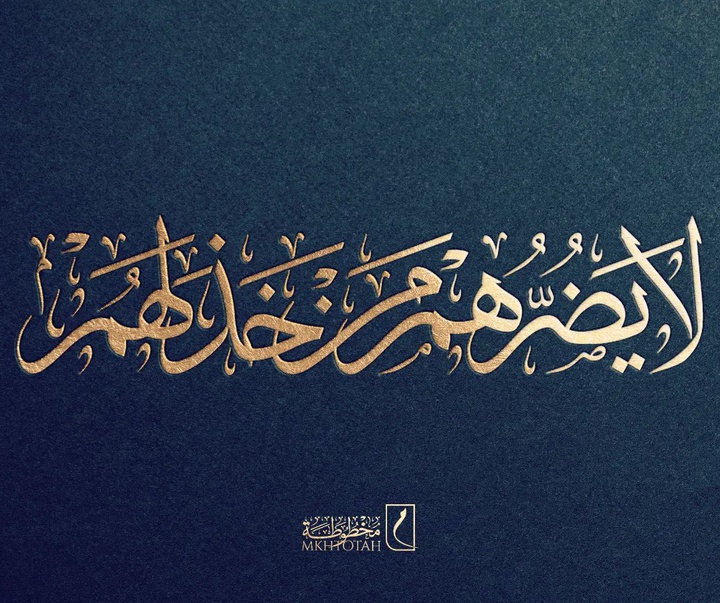 لَا يَضُرُّهُمْ مَنْ خَذَلَهُمْ
مخطوطة
MKHTOTAH